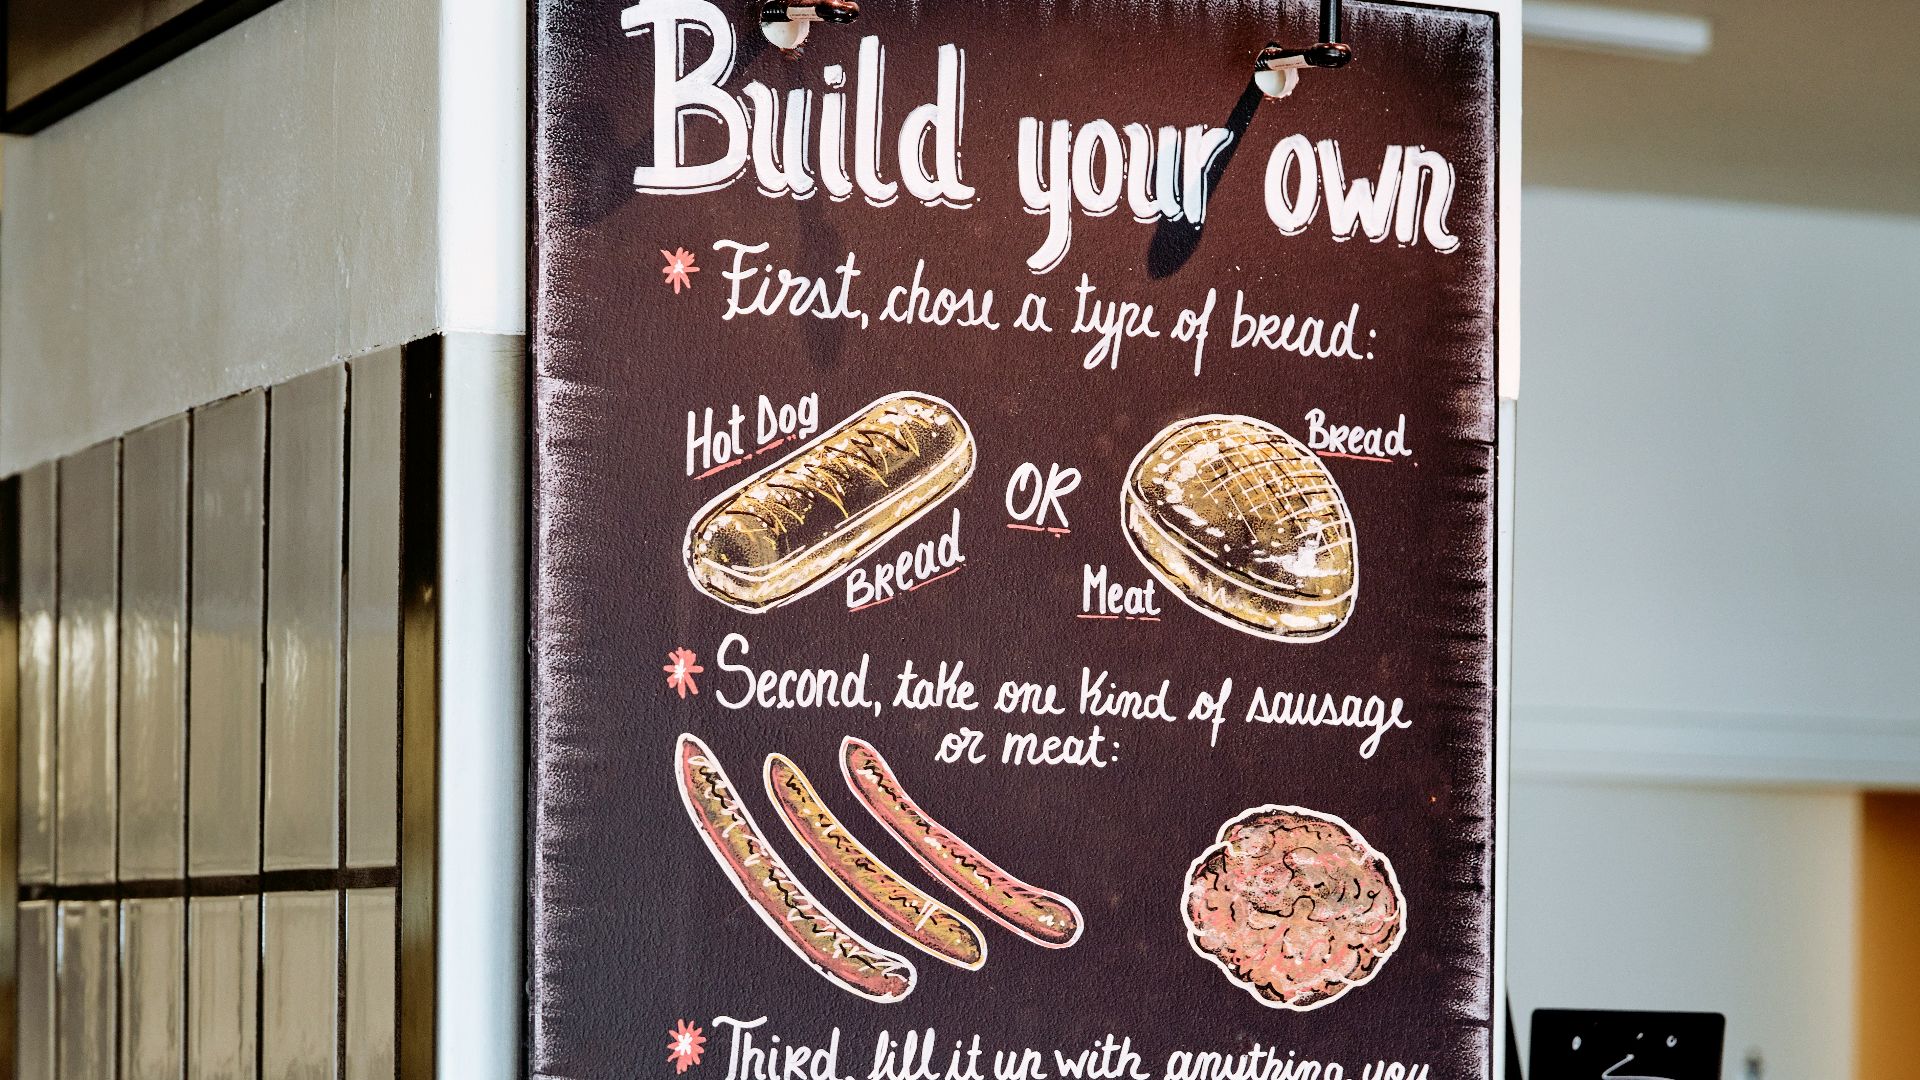 Build your own
First, chose a type of bread:
Hot Dog
Bread
OR
Bread
Meat
Second, take one kind of sausage
or meat:
Third, fill it up with anything you